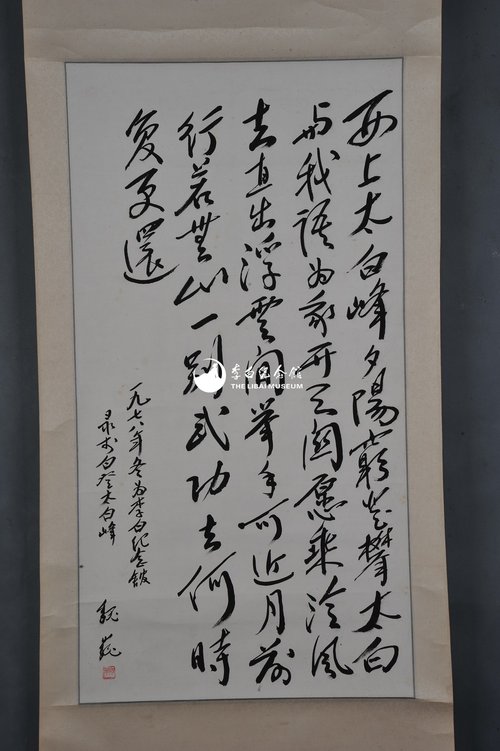 西上太白峰夕陽窮登攀太白
与我语为我开天關愿乘泠风
去直出浮雲间举手可近月前
行若無山一别武功去何時
复更還
一九七八年冬为李白纪念馆
录李白登太白峰
魏巍
李白纪念馆
THE LIBAI MUSEUM